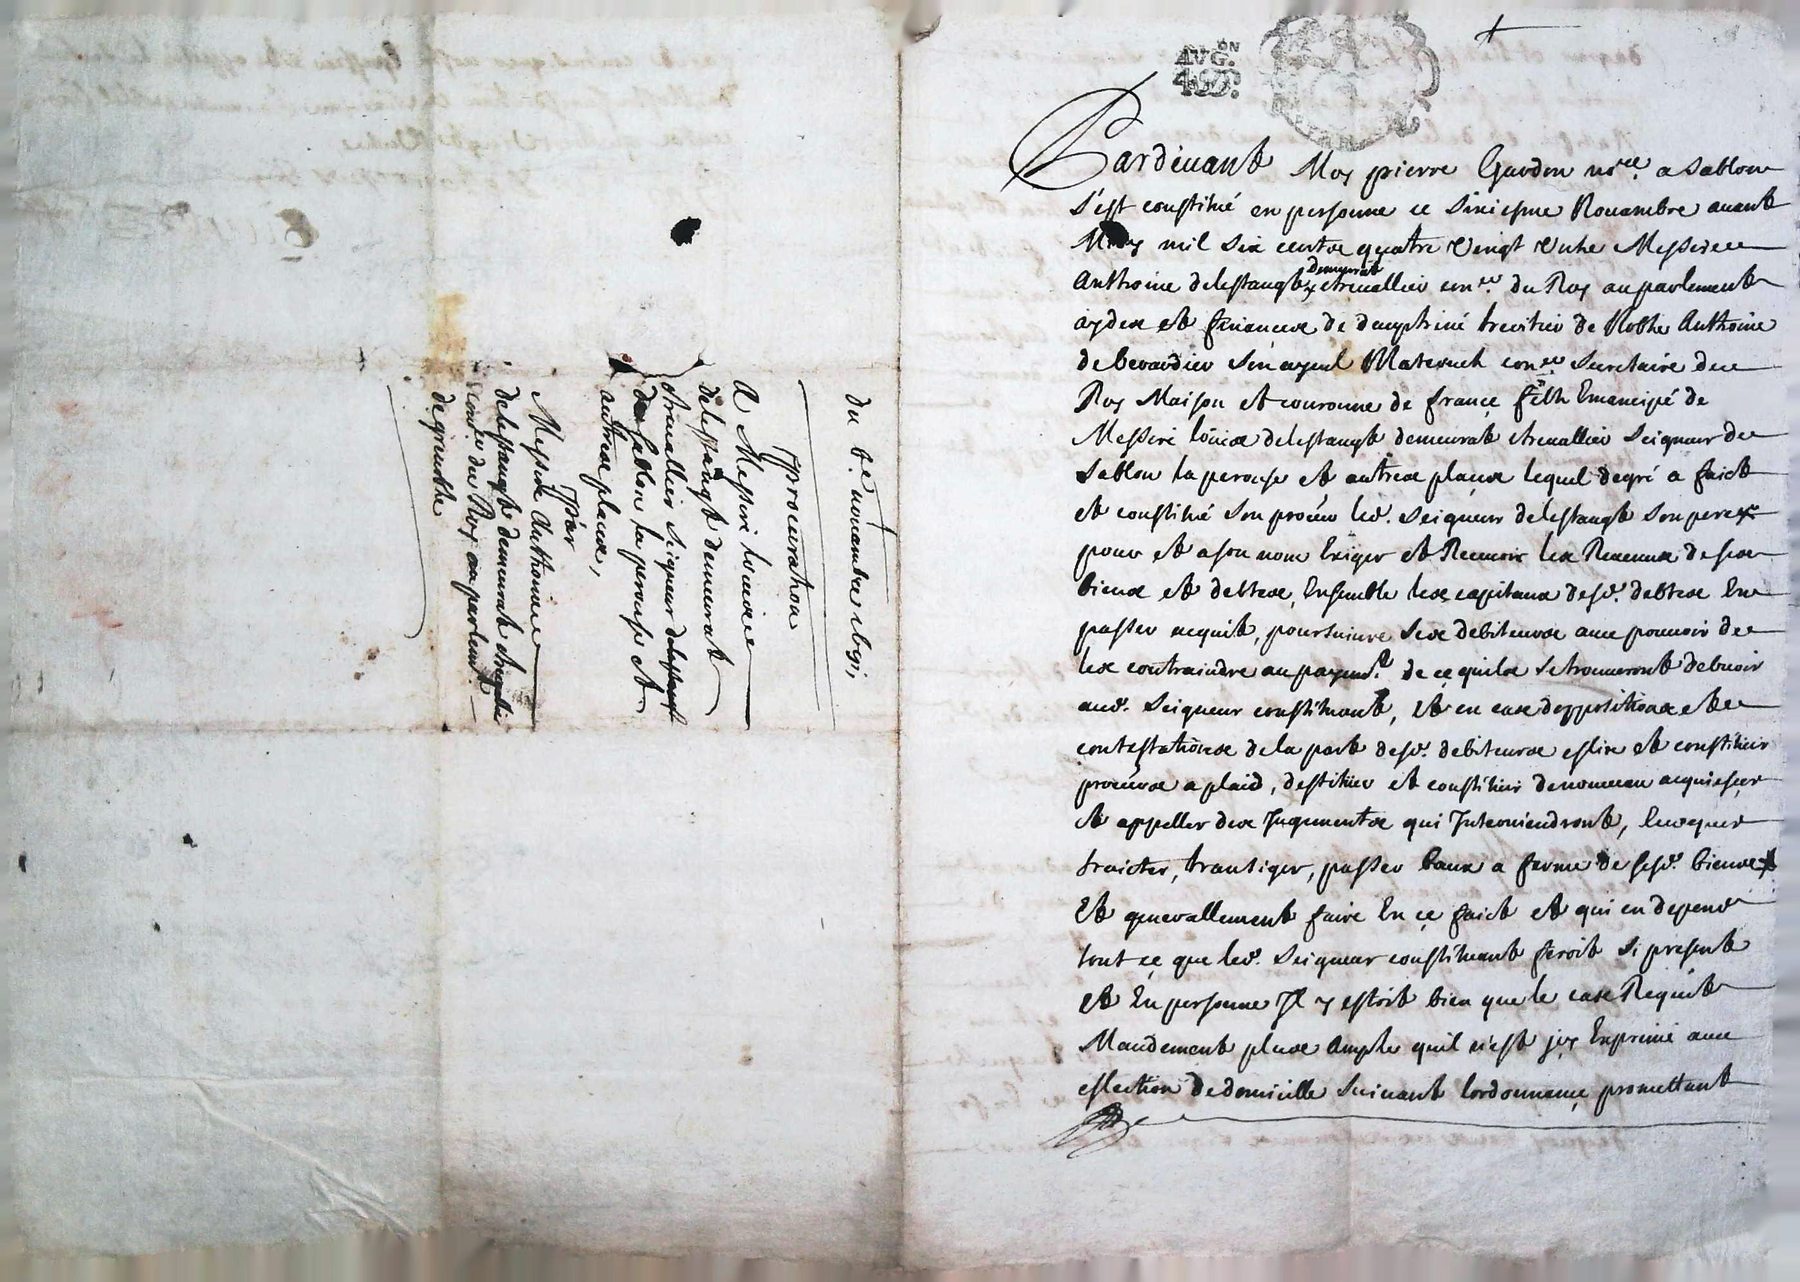 du 6e. novambre 1691,
Procuration
A Messire Louis
delestangt demurat
chevallier seigneur delestangt
de Sablon la perouse et
autres places,
Par
Messire Anthoine
delestangt demurat chevallier
Conr. du Roy au parlemt.
de grenoble
AUG.ON
4 S D.
Pardevant Moy pierre Gardon nore. a Sablon
s'est constitué en personne ce Siziesme Novambre avant
Midy mil six centz quatre vingt unze Messire
Anthoine delestangt demurat chevallier coner. du Roy au parlement
aydes et finances de dauphiné heritier de Noble Anthoine
de berardier son ayeul Maternel coner. Secretaire du
Roy Maison et couronne de france filz Emancipé de
Messire Loüis delestangt demurat chevallier Seigneur de
Sablon la perouse et autres places lequel degré a faict
et constitué son proceur led. Seigneur delestangt son pere
pour et a son nom Exiger et Recevoir les Revenus de ses
biens et debtes, Ensemble les capitaux desd. debtes En
passer acquit, poursuivre ses debiteurs avec pouvoir de
les contraindre au payemt. de ce quils se trouveront debvoir
aud. Seigneur constituant, Et en cas doppositions et de
contestations de la part desd. debiteurs eslire et constituer
proceurs a plaid, destituer et constituer denouveau acquiescer
et appeller des Jugements qui Interviendront, Evoquer
traicter, transiger, passer baux a ferme de sesd. biens
Et generallement faire En ce faict et qui en depend
tout ce que led. Seigneur constituant feroit si present
et En personne Jl y estoit bien que le cas Requit
Mandement plus Ample quil n'est jcy Exprimé avec
eslection de domicille suivant lordonnance promettant